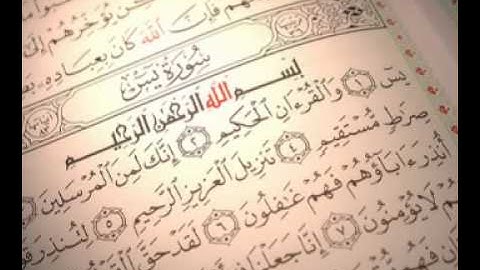 يُؤَخِّرُهُمْ إِلَىٰ
فَإِنَّ ٱللَّهَ كَانَ بِعِبَادِهِ
سُورَةُ يسٓ
بِسْمِ ٱللَّهِ ٱلرَّحْمَٰنِ ٱلرَّحِيمِ
يسٓ ١ وَٱلْقُرْءَانِ ٱلْحَكِيمِ ٢ إِنَّكَ لَمِنَ ٱلْمُرْسَلِينَ
صِرَٰطٍ مُّسْتَقِيمٍ ٤ تَنزِيلَ ٱلْعَزِيزِ ٱلرَّحِيمِ ٥ لِتُنذِرَ
أُنذِرَ ءَابَآؤُهُمْ فَهُمْ غَٰفِلُونَ ٦ لَقَدْ حَقَّ
لَا يُؤْمِنُونَ ٧ إِنَّا جَعَلْنَا